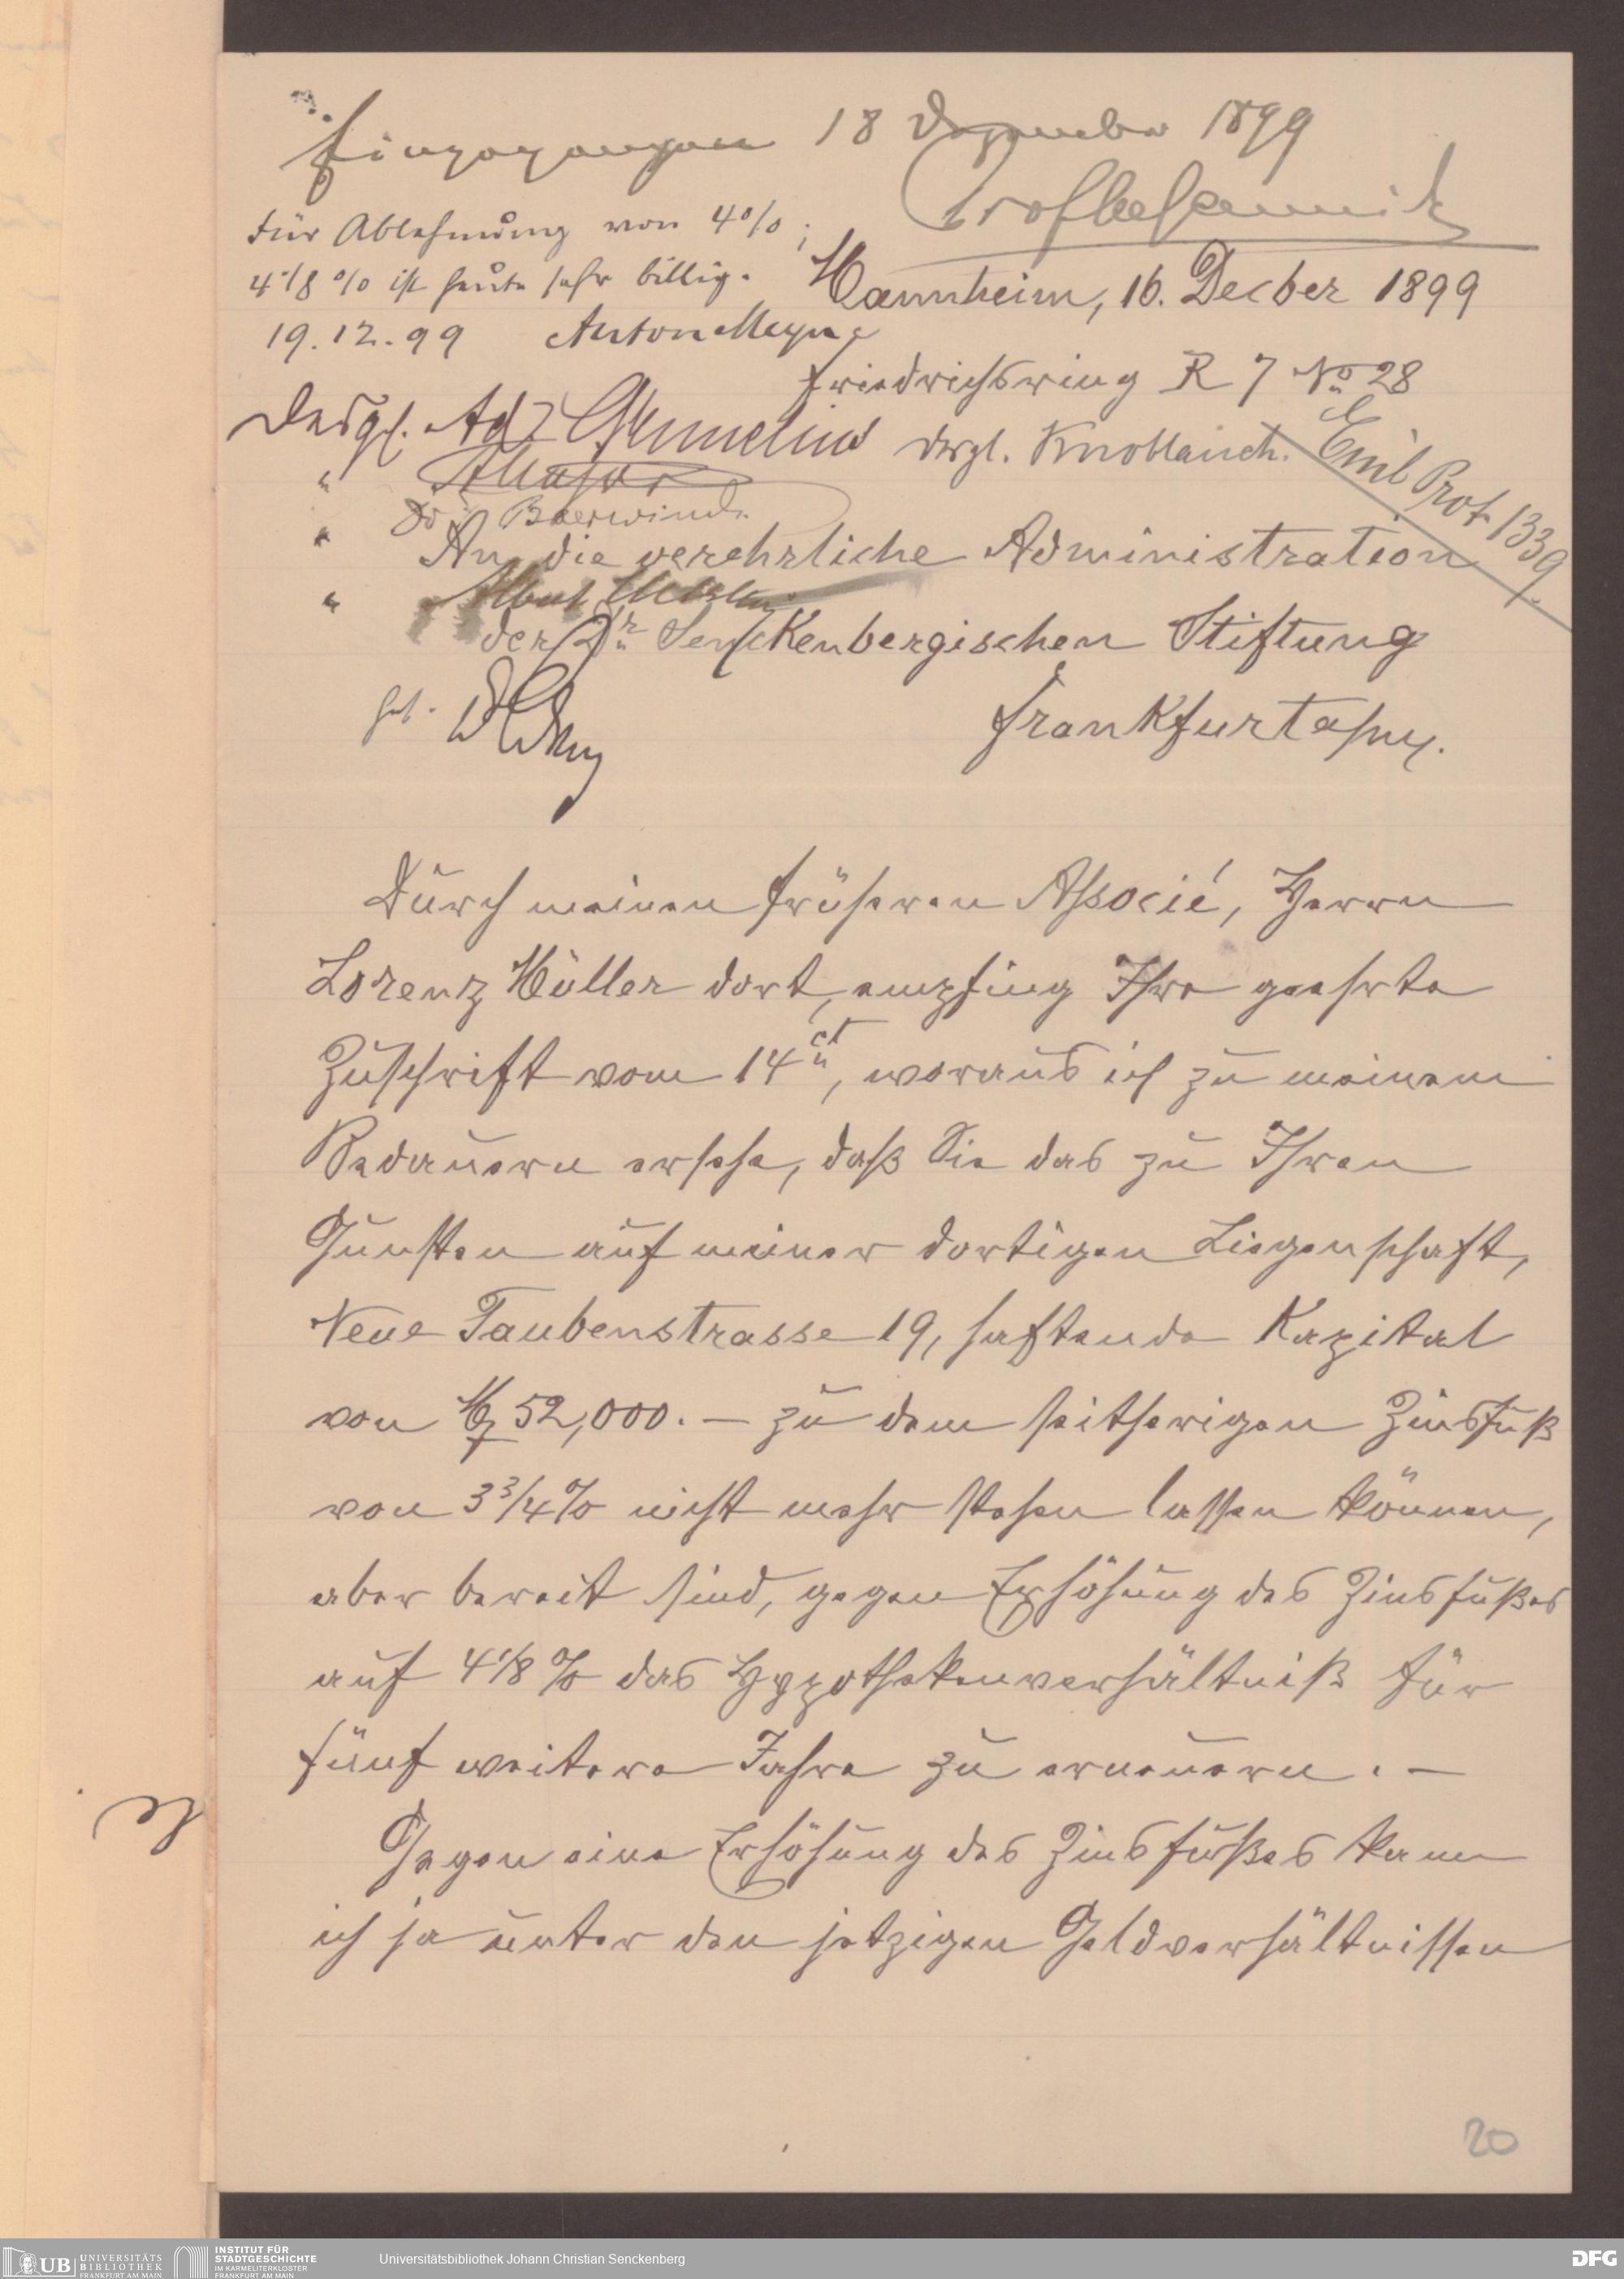 Eingegangen 18 Dezember 1899
Für Ablehnung von 4%;
4 1/8 % ist heute sehr billig.
19.12.99 Anton Meyer
Mannheim, 16. Decber 1899
Friedrichsring R 7 No 28
Desgl. Ad. Gmmelius desgl. Knoblauch.
Emil Prot. 1339.
" Dr. Baerwind.
An die verehrliche Administration
" Albert Metzler
der Dr. Senckenbergischen Stiftung
Frankfurt a/M.
Durch meinen früheren Associé, Herrn
Lorenz Müller dort, empfing Ihre geehrte
Zuschrift vom 14 ct, woraus ich zu meinem
Bedauern ersehe, daß Sie das zu Ihren
Gunsten auf meiner dortigen Liegenschaft,
Neue Taubenstrasse 19, haftende Kapital
von M 52,000.- zu dem seitherigen Zinsfuß
von 3 3/4 % nicht mehr stehen lassen können,
aber bereit sind, gegen Erhöhung des Zinsfußes
auf 4 1/8 % das Hypothekenverhältniß für
fünf weitere Jahre zu erneuern. -
Gegen eine Erhöhung des Zinsfußes kann
ich ja unter den jetzigen Geldverhältnissen
20
UB UNIVERSITÄTS
BIBLIOTHEK
FRANKFURT AM MAIN
INSTITUT FÜR
STADTGESCHICHTE
IM KARMELITERKLOSTER
FRANKFURT AM MAIN
Universitätsbibliothek Johann Christian Senckenberg
DFG